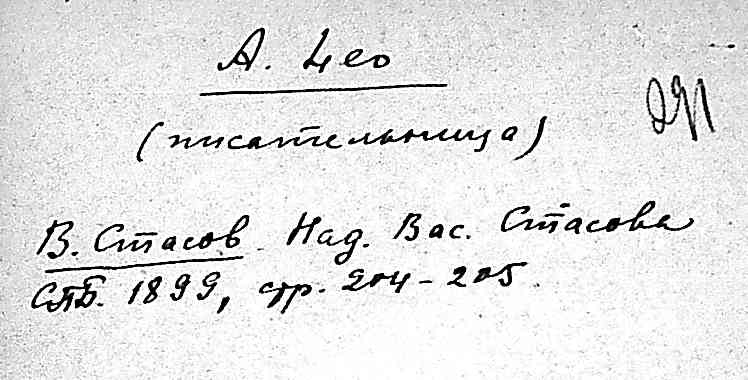 А. Лео
(писательница)
В. Стасов. Над. Вас. Стасова
СПБ. 1899, стр. 204-205.